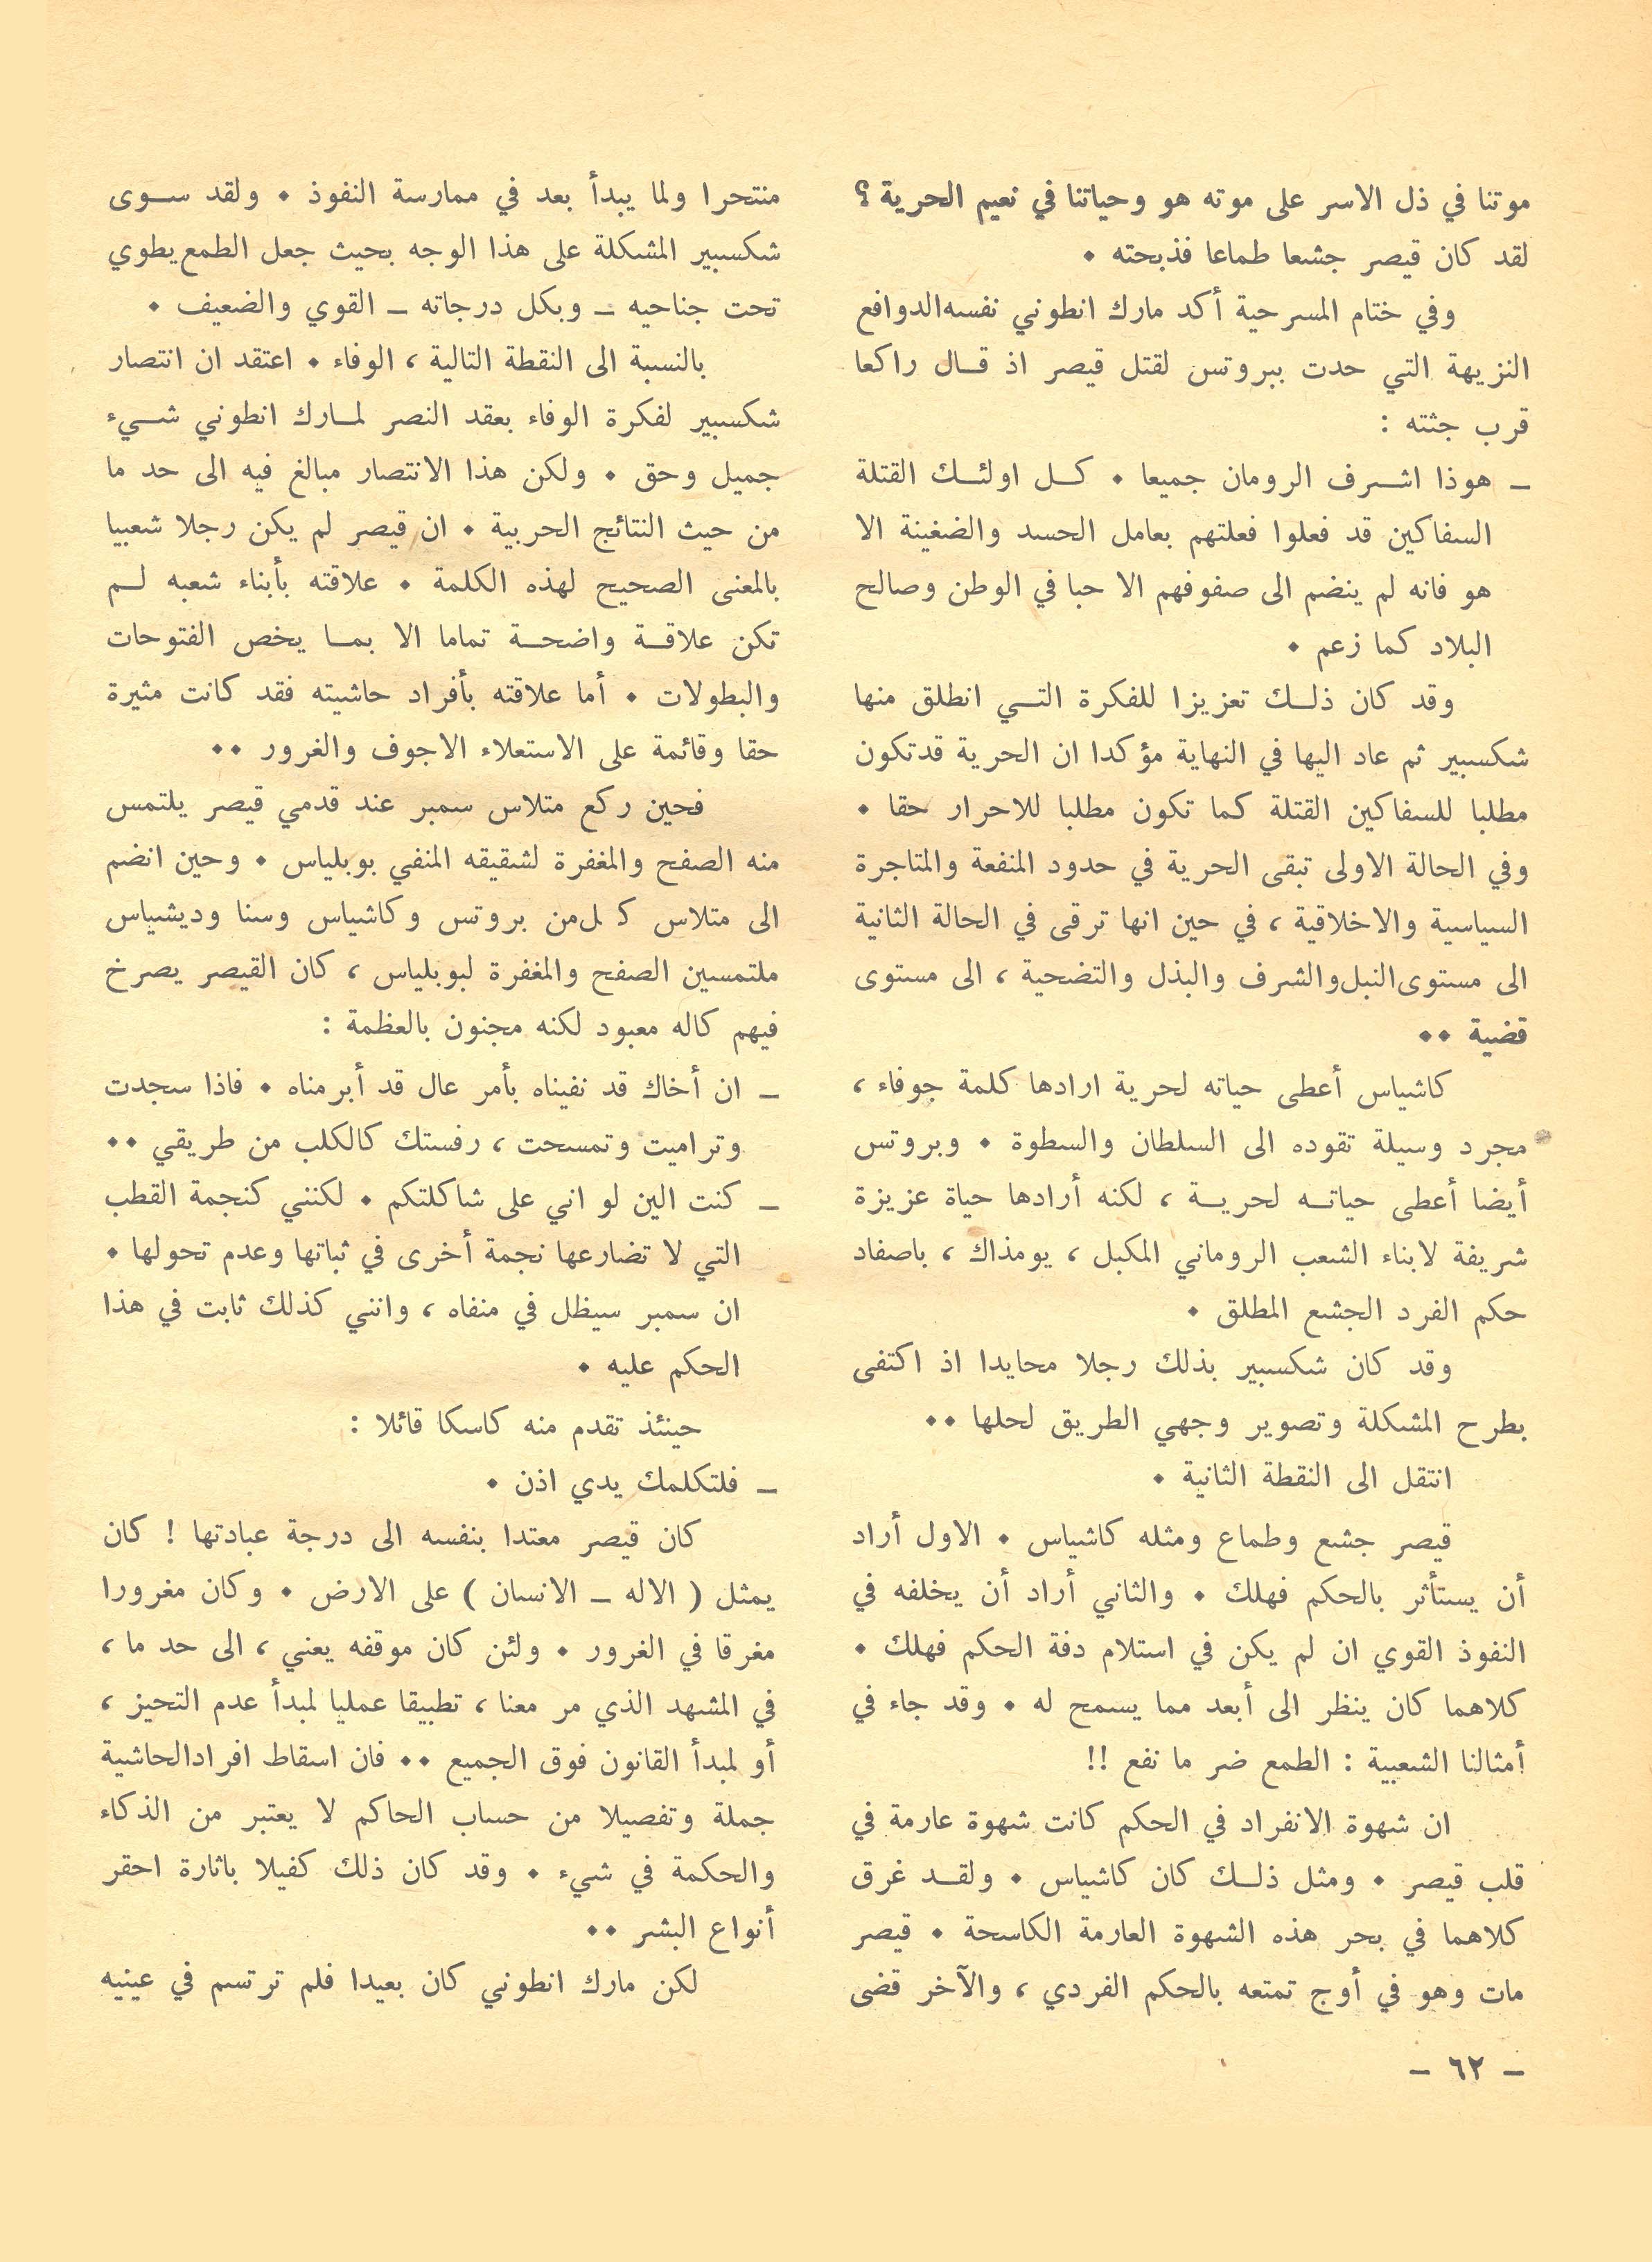 موتنا في ذل الاسر على موته هو وحياتنا في نعيم الحرية ؟
لقد كان قيصر جشعا طماعا فذبحته .
وفي ختام المسرحية أكد مارك انطوني نفسه الدوافع
النزيهة التي حدت ببروتس لقتل قيصر اذ قال راكعا
قرب جثته :
ـ هوذا اشرف الرومان جميعا . كل اولئك القتلة
السفاكين قد فعلوا فعلتهم بعامل الحسد والضغينة الا
هو فانه لم ينضم الى صفوفهم الا حبا في الوطن وصالح
البلاد كما زعم .
وقد كان ذلك تعزيزا للفكرة التي انطلق منها
شكسبير ثم عاد اليها في النهاية مؤكدا ان الحرية قد تكون
مطلبا للسفاكين القتلة كما تكون مطلبا للاحرار حقا .
وفي الحالة الاولى تبقى الحرية في حدود المنفعة والمتاجرة
السياسية والاخلاقية ، في حين انها ترقى في الحالة الثانية
الى مستوى النبل والشرف والبذل والتضحية ، الى مستوى
قضية ..
كاشياس أعطى حياته لحرية ارادها كلمة جوفاء ،
مجرد وسيلة تقوده الى السلطان والسطوة . وبروتس
أيضا أعطى حياته لحرية ، لكنه أرادها حياة عزيزة
شريفة لابناء الشعب الروماني المكبل ، يومذاك ، باصفاد
حكم الفرد الجشع المطلق .
وقد كان شكسبير بذلك رجلا محايدا اذ اكتفى
بطرح المشكلة وتصوير وجهي الطريق لحلها ..
انتقل الى النقطة الثانية .
قيصر جشع وطماع ومثله كاشياس . الاول أراد
أن يستأثر بالحكم فهلك . والثاني أراد أن يخلفه في
النفوذ القوي ان لم يكن في استلام دفة الحكم فهلك .
كلاهما كان ينظر الى أبعد مما يسمح له . وقد جاء في
أمثالنا الشعبية : الطمع ضر ما نفع !!
ان شهوة الانفراد في الحكم كانت شهوة عارمة في
قلب قيصر . ومثل ذلك كان كاشياس . ولقد غرق
كلاهما في بحر هذه الشهوة العارمة الكاسحة . قيصر
مات وهو في أوج تمتعه بالحكم الفردي ، والآخر قضى
منتحرا ولما يبدأ بعد في ممارسة النفوذ . ولقد سوى
شكسبير المشكلة على هذا الوجه بحيث جعل الطمع يطوي
تحت جناحيه ـ وبكل درجاته ـ القوي والضعيف .
بالنسبة الى النقطة التالية ، الوفاء . اعتقد ان انتصار
شكسبير لفكرة الوفاء بعقد النصر لمارك انطوني شيء
جميل وحق . ولكن هذا الانتصار مبالغ فيه الى حد ما
من حيث النتائج الحربية . ان قيصر لم يكن رجلا شعبيا
بالمعنى الصحيح لهذه الكلمة . علاقته بأبناء شعبه لم
تكن علاقة واضحة تماما الا بما يخص الفتوحات
والبطولات . أما علاقته بأفراد حاشيته فقد كانت مثيرة
حقا وقائمة على الاستعلاء الاجوف والغرور ..
فحين ركع متلاس سمبر عند قدمي قيصر يلتمس
منه الصفح والمغفرة لشقيقه المنفي بوبلياس . وحين انضم
الى متلاس كل من بروتس وكاشياس وسنا وديشياس
ملتمسين الصفح والمغفرة لبوبلياس ، كان القيصر يصرخ
فيهم كاله معبود لكنه مجنون بالعظمة :
ـ ان أخاك قد نفيناه بأمر عال قد أبرمناه . فاذا سجدت
وتراميت وتمسحت ، رفستك كالكلب من طريقي ..
ـ كنت الين لو اني على شاكلتكم . لكنني كنجمة القطب
التي لا تضارعها نجمة أخرى في ثباتها وعدم تحولها .
ان سمبر سيظل في منفاه ، وانني كذلك ثابت في هذا
الحكم عليه .
حينئذ تقدم منه كاسكا قائلا :
ـ فلتكلمك يدي اذن .
كان قيصر معتدا بنفسه الى درجة عبادتها ! كان
يمثل ( الاله ـ الانسان ) على الارض . وكان مغرورا
مغرقا في الغرور . ولئن كان موقفه يعني ، الى حد ما ،
في المشهد الذي مر معنا ، تطبيقا عمليا لمبدأ عدم التحيز ،
أو لمبدأ القانون فوق الجميع .. فان اسقاط افراد الحاشية
جملة وتفصيلا من حساب الحاكم لا يعتبر من الذكاء
والحكمة في شيء . وقد كان ذلك كفيلا باثارة احقر
أنواع البشر ..
لكن مارك انطوني كان بعيدا فلم ترتسم في عينيه
ـ ٦٢ ـ